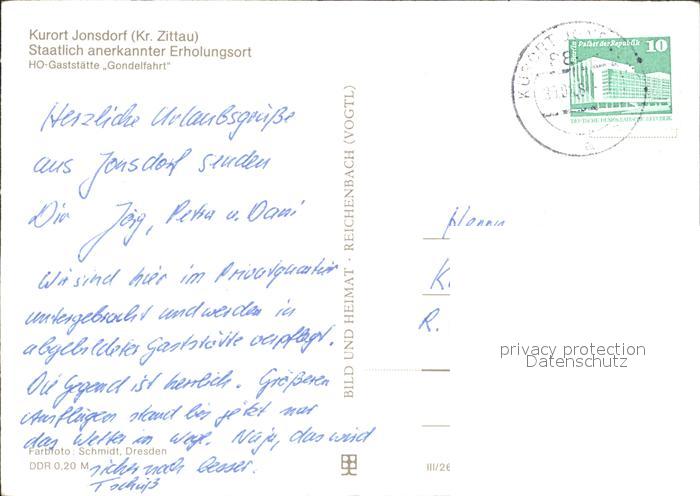 Kurort Jonsdorf (Kr. Zittau)
Staatlich anerkannter Erholungsort
HO-Gaststätte „Gondelfahrt"
Herzliche Urlaubsgrüße
aus Jonsdorf senden
Dir Jörg, Petra u. Dani
Wir sind hier im Privatquartier
untergebracht und werden in
abgebildeter Gaststätte verpflegt.
Die Gegend ist herrlich. Größeren
Ausflügen stand bis jetzt nur
das Wetter im Wege. Naja, das wird
sicher noch besser.
Tschüß
Farbfoto: Schmidt, Dresden
DDR 0,20 M
BILD UND HEIMAT · REICHENBACH (VOGTL)
KURORT
a
Palast der Republik
10
DEUTSCHE DEMOKRATISCHE REPUBLIK
K
R.
privacy protection
Datenschutz
III/26